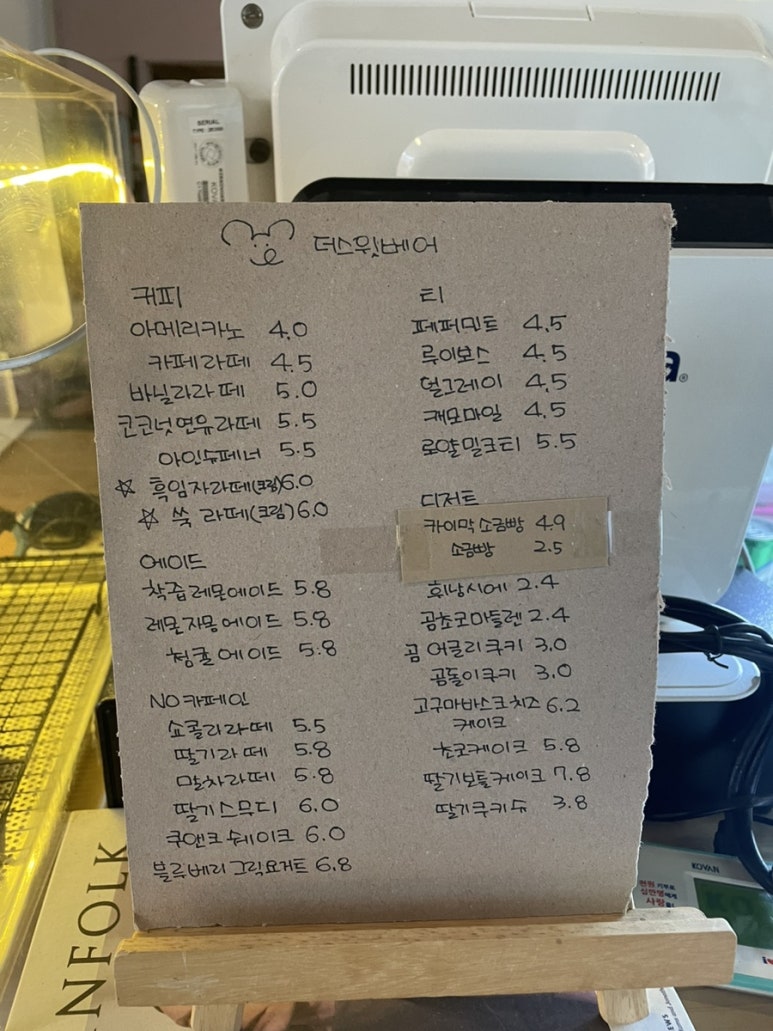 더스윗베어
커피
아메리카노 4.0
카페라떼 4.5
바닐라라떼 5.0
코코넛연유라떼 5.5
아인슈페너 5.5
☆ 흑임자라떼(크림) 6.0
☆ 쑥 라떼(크림) 6.0
에이드
착즙레몬에이드 5.8
레몬자몽에이드 5.8
청귤에이드 5.8
NO카페인
쇼콜라라떼 5.5
딸기라떼 5.8
말차라떼 5.8
딸기스무디 6.0
쿠앤크 쉐이크 6.0
블루베리 그릭요거트 6.8
티
페퍼민트 4.5
루이보스 4.5
얼그레이 4.5
캐모마일 4.5
로얄밀크티 5.5
디저트
카이막 소금빵 4.9
소금빵 2.5
휘낭시에 2.4
곰초코마들렌 2.4
곰 어글리쿠키 3.0
곰돌이쿠키 3.0
고구마바스크치즈 6.2
케이크
초코케이크 5.8
딸기보틀케이크 7.8
딸기쿠키슈 3.8
SERIAL
NFOLK
KOVAN